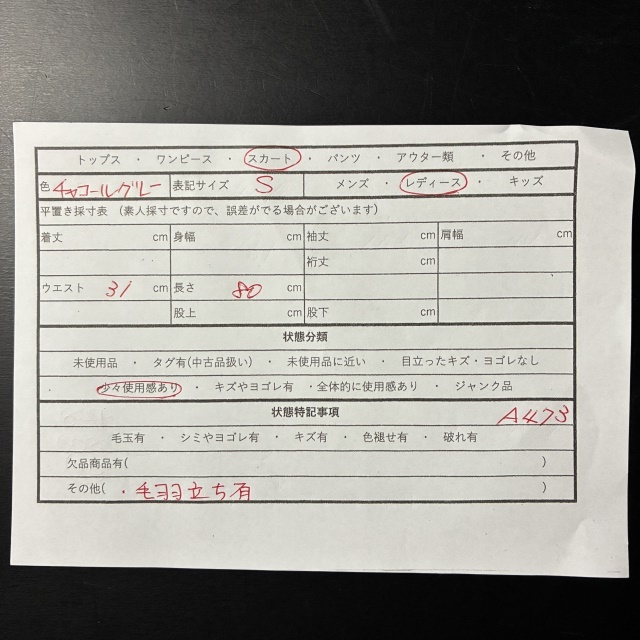 トップス ・ ワンピース ・ スカート ・ パンツ ・ アウター類 ・ その他
色 チャコールグレー 表記サイズ S メンズ ・ レディース ・ キッズ
平置き採寸表 （素人採寸ですので、誤差がでる場合がございます）
着丈 cm 身幅 cm 袖丈 cm 肩幅 cm
裄丈 cm
ウエスト 31 cm 長さ 80 cm
股上 cm 股下 cm
状態分類
未使用品 ・ タグ有(中古品扱い) ・ 未使用に近い ・ 目立ったキズ・ヨゴレなし
・ 少々使用感あり ・ キズやヨゴレ有 ・全体的に使用感あり ・ ジャンク品
状態特記事項 A473
毛玉有 ・ シミやヨゴレ有 ・ キズ有 ・ 色褪せ有 ・ 破れ有
欠品商品有( )
その他( ・毛羽立ち有 )